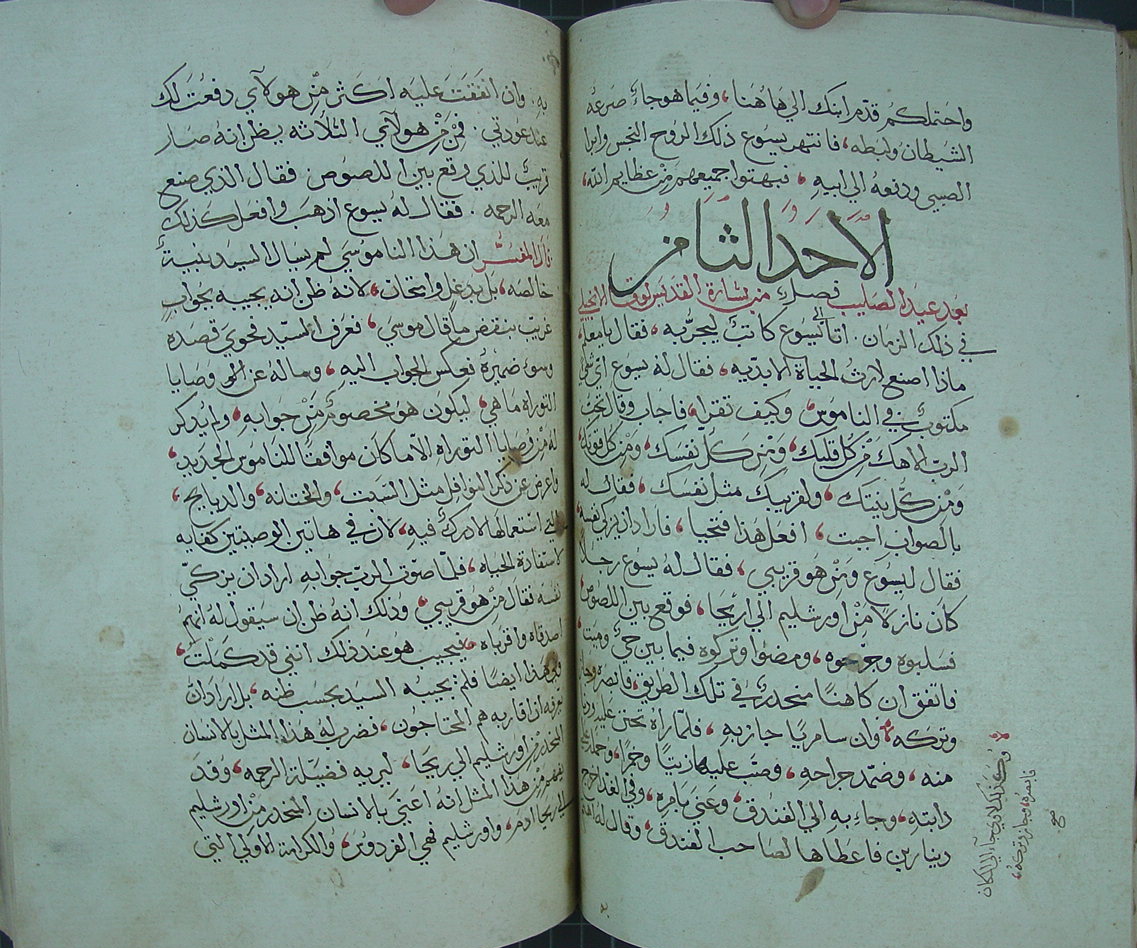 واحتملكم قدم ابنك الي هاهنا، وفيما هو جاء صرعه
الشيطان ولبطه، فانتهر يسوع ذلك الروح النجس وابرا
الصبي ودفعه الي ابيه، فبهتوا جميعهم من عظايم الله،
الاحد الثامن
بعد عيد الصليب فصل من بشارة القديس لوقا الانجيلي
في ذلك الزمان. اتا الى يسوع كاتب ليجربه، فقال يا معلم،
ماذا اصنع لارث الحياة الابديه، فقال له يسوع اي شي
مكتوب في الناموس، وكيف تقرا، فاجاب وقال تحب
الرب الاهك من كل قلبك، ومن كل نفسك، ومن كل قوتك،
ومن كل نيتك، ولقريبك مثل نفسك، فقال له
بالصواب اجبت، افعل هذا فتحيا، فاراد ان يزكي نفسه
فقال ليسوع ومن هو قريبي، فقال له يسوع رجلا
كان نازلا من اورشليم الي اريحا، فوقع بين اللصوص،
فسلبوه وجرحوه، ومضوا وتركوه فيما بين حي وميت،
فاتفق ان كاهنا منحدر في تلك الطريق، فابصره وجاز
وتركه، وان سامريا جاز به، فلما راه تحنن عليه ودنا
منه، وضمد جراحه، وصب عليها زيتا وخمرا، وحمله علي
دابته، وجاء به الي الفندق، وعني بامره، وفي الغد اخرج
دينارين فاعطاها لصاحب الفندق، وقال له
وكذلك لاوي جا الي المكان
فابصره وجاز وتركه،
صح
به. وان انفقت عليه اكثر من هولاي دفعت لك
عند عودتي. فمن من هولاي الثلاثه يظن انه صار
قريب للذي وقع بين اللصوص. فقال الذي صنع
معه الرحمه. فقال له يسوع اذهب وافعل كذلك
قال المفسر ان هذا الناموسي لم يسال السيد بنية
خالصه، بل بدغل وامتحان، لانه ظن انه يجيبه بجواب
غريب ينقض ما قال موسي، فعرف السيد فحوي قصده
وسوء ضميره فعكس الجواب اليه، وساله عن وصايا
التوراه ما هي، ليكون هو مخصوم من جوابه، ولم يذكر
له من وصايا التوراه الا ما كان موافقا للناموس الجديد،
واعرض عن ذكر النوافل مثل السبت، والختانه، والدبايح،
استعمالها لا درك فيه، لان في هاتين الوصيتين كفايه
لاستفادة الحياه، فلما صوب الرب جوابه اراد ان يزكي
نفسه فقال من هو قريبي، وذلك انه ظن ان سيقول له انهم
اصدقاه واقرباه، فيجيب هو عند ذلك انني قد كملت
هذا ايضا فلم يجيبه السيد بحسب ظنه، بل اراد ان
يعرفه ان اقاربه هم المحتاجون، فضرب له هذا المثل بالانسان
المنحدر من اورشليم الي ريحا، ليريه فضيلة الرحمه، وقد
يفهم من هذا المثل انه اعني بالانسان المنحدر من اورشليم
الي ريحا ادم، واورشليم فهي الفردوس، والكرامة الاولي التي